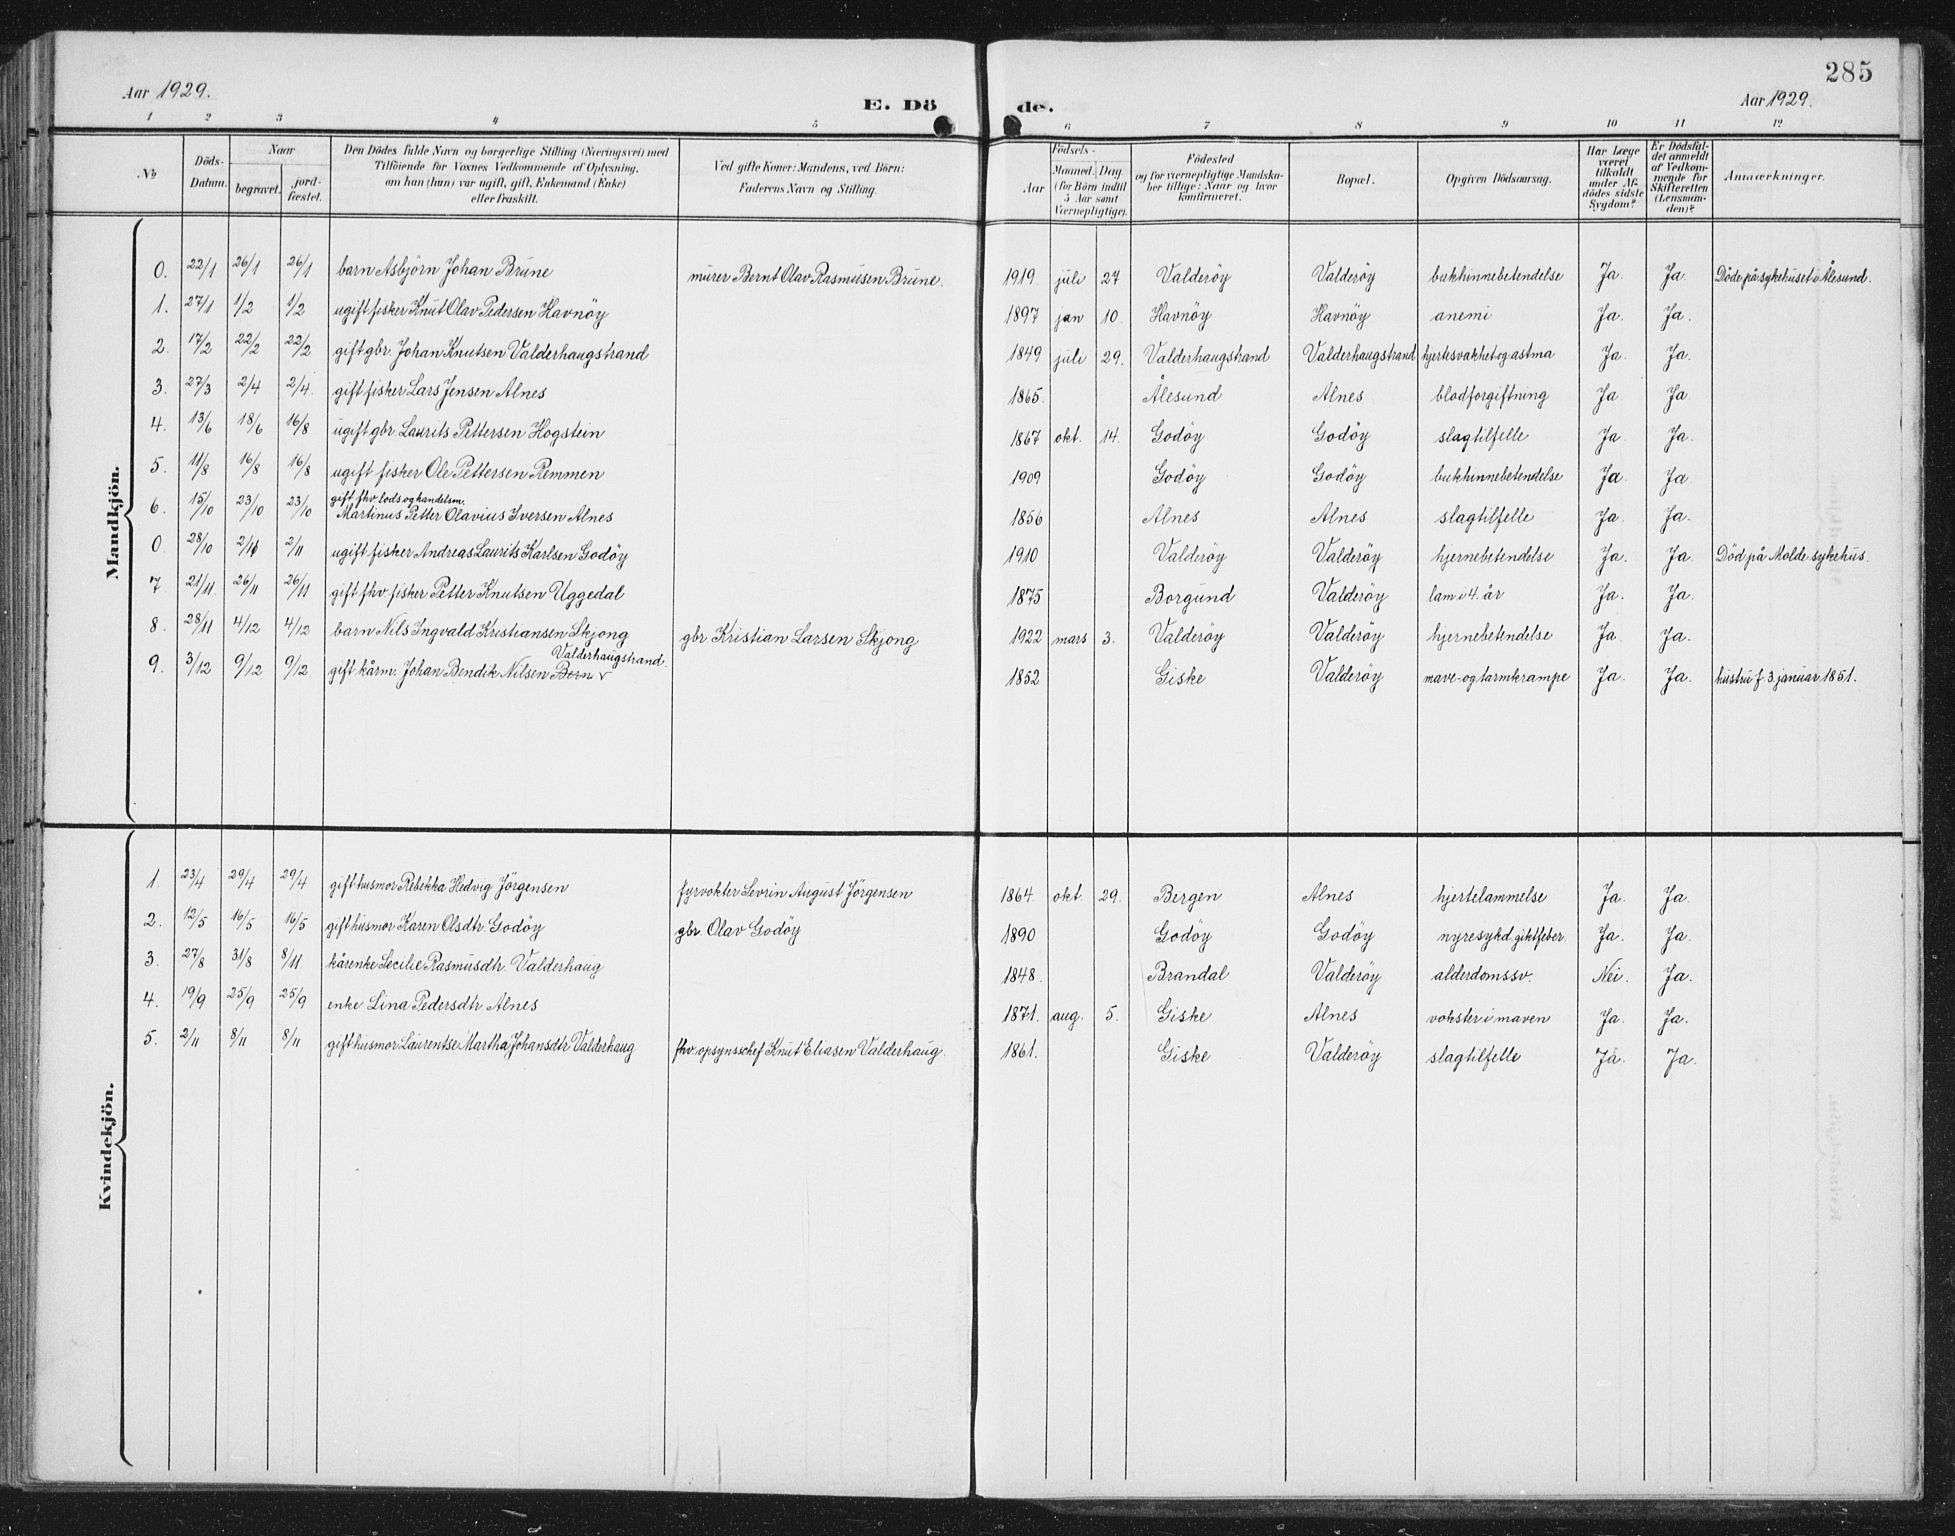 285
Aar 1929.
E. Dö de.
Aar 1929.
1 2 3 4 5 6 7 8 9 10 11 12
No
Döds-Datum.
Naar
begravet.
jord-fæstet.
Den Dödes fulde Navn og borgerlige Stilling (Næringsvei) med
Tilföiende for Voxnes Vedkommende af Oplysning,
om han (hun) var ugift, gift, Enkemand (Enke)
eller fraskilt.
Ved gifte Koner: Mandens, ved Börn:
Faderens Navn og Stilling.
Födsels-
Aar
Maaned. Dag
(for Börn indtil
5 Aar samt
Værnepligtige).
Födested
og for værnepligtige Mandska-
ber tillige: Naar og hvor
konfirmeret.
Bopæl.
Opgiven Dödsaarsag.
Har Læge
været
tilkaldt
under Af-
dödes sidste
Sygdom?
Er Dödsfal-
det anmeldt
af Vedkom-
mende for
Skifteretten
(Lensman-
den)?
Anmærkninger.
Mandkjön.
0. 22/1 26/1 26/1 barn Asbjörn Johan Brune murer Bernt Olav Rasmusen Brune. 1919. juli 27 Valderöy Valderöy bukhinnebetendelse Ja. Ja. Döde på sykehuset i Ålesund.
1. 27/1 1/2 1/2 ugift fisker Knut Olav Pedersen Havnöy 1897 jan 10. Havnöy Havnöy anemi Ja. Ja.
2. 17/2 22/2 22/2 gift gbr. Johan Knutsen Valderhaugstrand 1849 juli 29. Valderhaugstrand Valderhaugstrand hjertesvakhet og astma Ja. Ja.
3. 27/3 2/4 2/4. gift fisker Lars Jensen Alnes 1865. Ålesund Alnes blodforgiftning Ja. Ja.
4. 13/6 18/6 16/8 ugift gbr Laurits Pettersen Hogstein 1867 okt. 14. Godöy Godöy slagtilfelle Ja. Ja.
5. 11/8 16/8 16/8 ugift fisker Ole Pettersen Remmen 1909 Godöy Godöy bukhinnebetendelse Ja Ja.
6. 15/10 23/10 23/10 gift fhv. lods og handelsm. Martinus Petter Olavius Iversen Alnes 1856 Alnes Alnes slagtilfelle Ja. Ja.
0. 28/10 2/11 2/11 ugift fisker Andreas Laurits Karlsen Godöy 1910 Valderöy Valderöy hjernebetendelse Ja. Ja. Död på Molde sykehus.
7 21/11 26/11 26/11 gift fhv. fisker Petter Knutsen Uggedal 1875 Borgund Valderöy lam i 4. år Ja. Ja.
8. 28/11 4/12 4/12 barn Nils Ingvald Kristiansen Skjong gbr Kristian Larsen Skjong 1922 mars 3. Valderöy Valderöy hjernebetendelse Ja. Ja.
Valderhaugstrand.
9. 3/12 9/12 9/12 gift kårm. Johan Bendik Nilsen v 1852 Giske Valderöy mave- og tarmkrampe Ja. Ja. hustru f. 3. januar 1851.
Kvindekjön.
1. 23/4 29/4 29/4 gift husmor Rebekka Hedvig Jörgensen fyrvokter Sevrin August Jörgensen 1864. okt. 29. Bergen Alnes hjertelammelse Ja. Ja.
2. 12/5 16/5 16/5 gift husmor Karen Olsdtr. Godöy gbr. Olav Godöy 1890 Godöy Godöy nyresykd. giktfeber. Ja. Ja.
3. 27/8 31/8 8/11 kårenke Secilie Rasmusdtr. Valderhaug 1848. Brandal Valderöy alderdomssv. Nei. Ja.
4. 19/9 25/9 25/9 enke Lina Pedersdtr Alnes 1871. aug. 5. Giske Alnes vokster i maven Ja. Ja.
5. 2/11 8/11 8/11 gift husmor Laurentse Martha Johansdtr Valderhaug fhv. opsynsschef Knut Eliasen Valderhaug. 1861. Giske Valderöy slagtilfelle Ja. Ja.